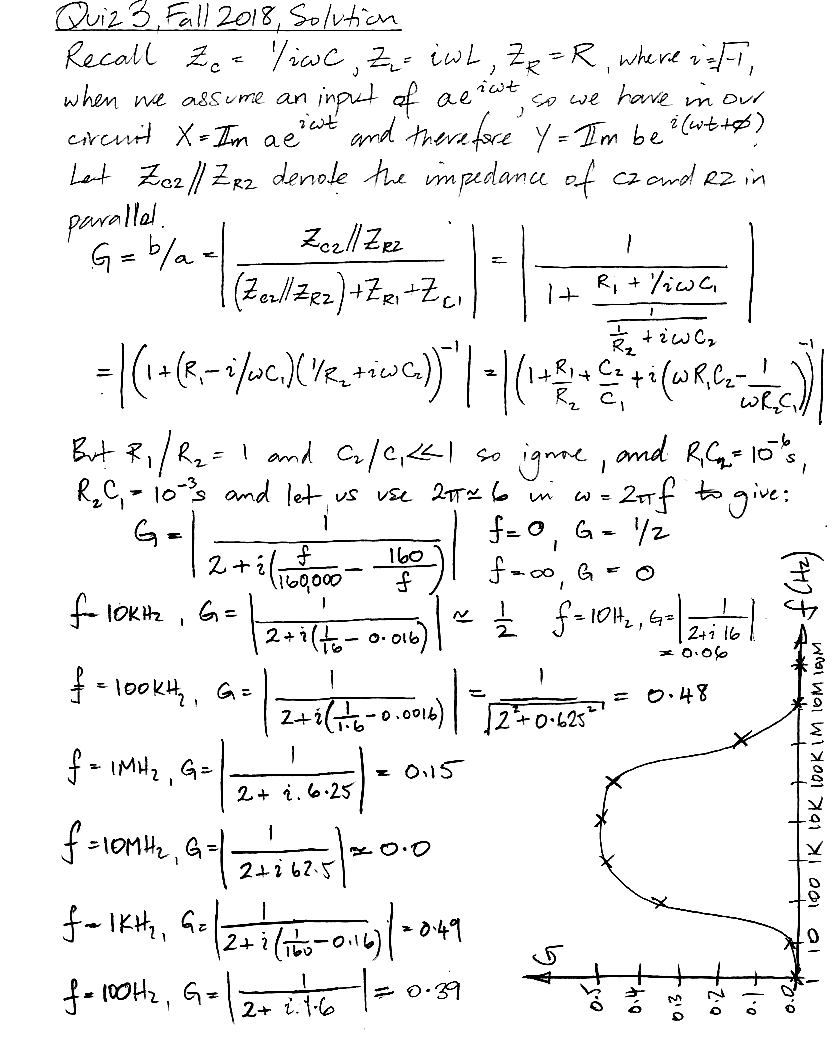 Quiz 3, Fall 2018, Solution
Recall Z_C = 1/iωC, Z_L = iωL, Z_R = R, where i=√-1,
when we assume an input of ae^{iωt}, so we have in our
circuit X = Im ae^{iωt} and therefore Y = Im be^{i(ωt+φ)}.
Let Z_C2 // Z_R2 denote the impedance of C2 and R2 in
parallel.
G = b/a = | Z_C2//Z_R2 / ((Z_C2//Z_R2)+Z_R1+Z_C1) | = | 1 / (1 + (R_1 + 1/iωC_1) / (1 / (1/R_2 + iωC_2))) |
= |(1+(R_1 - i/ωC_1)(1/R_2 + iωC_2))^{-1}| = |(1 + R_1/R_2 + C_2/C_1 + i(ωR_1C_2 - 1/ωR_2C_1))^{-1}|
But R_1/R_2 = 1 and C_2/C_1 << 1 so ignore, and R_1C_2 = 10^{-6}s,
R_2C_1 = 10^{-3}s and let us use 2π ≈ 6 in ω = 2πf to give:
G = | 1 / (2 + i(f/160,000 - 160/f)) | f=0, G = 1/2
f=∞, G = 0
f=10KHz, G = | 1 / (2+i(1/16 - 0.016)) | ≈ 1/2 f=10Hz, G = | 1 / (2+i16) |
≈ 0.06
f = 100KHz, G = | 1 / (2+i(1/1.6 - 0.0016)) | = 1 / √(2²+0.625²) = 0.48
f = 1MHz, G = | 1 / (2+ i.6.25) | = 0.15
f = 10MHz, G = | 1 / (2+i62.5) | ≈ 0.0
f = 1KHz, G = | 1 / (2+i(1/160 - 0.16)) | = 0.49
f = 100Hz, G = | 1 / (2+ i.1.6) | = 0.39
G
0.5 0.4 0.3 0.2 0.1 0.0
1 10 100 1K 10K 100K 1M 10M 100M
f(Hz)